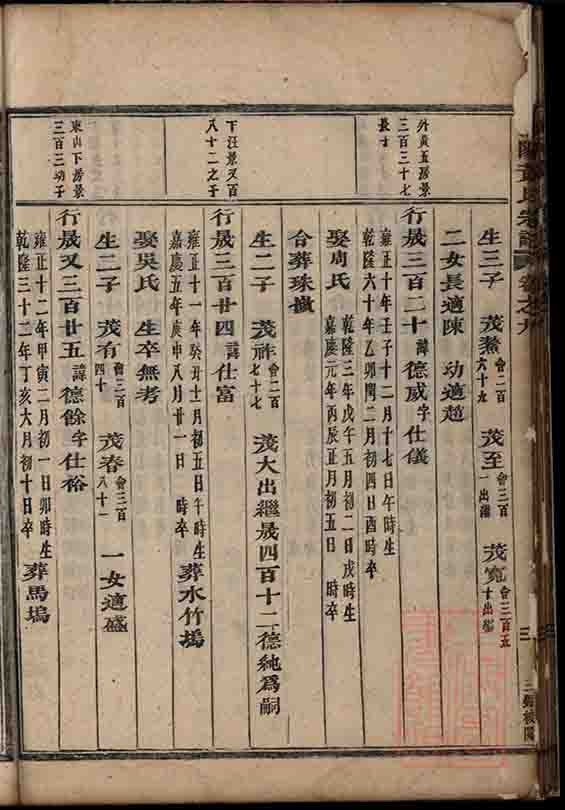 生三子 茂𤋮會二百六十九 茂至會三百一出繼 茂寬會三百五十出繼
二女長適陳 幼適趙
外黃五房景三百三十七長子
行晟三百二十諱德威字仕儀
雍正十年壬子十二月十七日午時生
乾隆六十年乙卯閏二月初四日酉時卒
娶周氏
乾隆三年戊午五月初二日戌時生
嘉慶元年丙辰正月初五日 時卒
合葬珠
生二子 茂祚會二百七十七 茂大出繼晟四百十二德純爲嗣
下汪景又百八十二之子
行晟三百廿四諱仕富
雍正十一年癸丑十一月初五日午時生
嘉慶五年庚申八月廿一日 時卒
葬水竹塢
娶吳氏 生卒無考
生二子 茂有會三百四十 茂春會三百八十一 一女適盛
東山下房景三百三幼子
行晟又三百廿五諱德餘字仕裕
雍正十二年甲寅二月初一日卯時生
乾隆三十二年丁亥六月初十日卒
葬馬塢
氏宗譜 卷之九
三